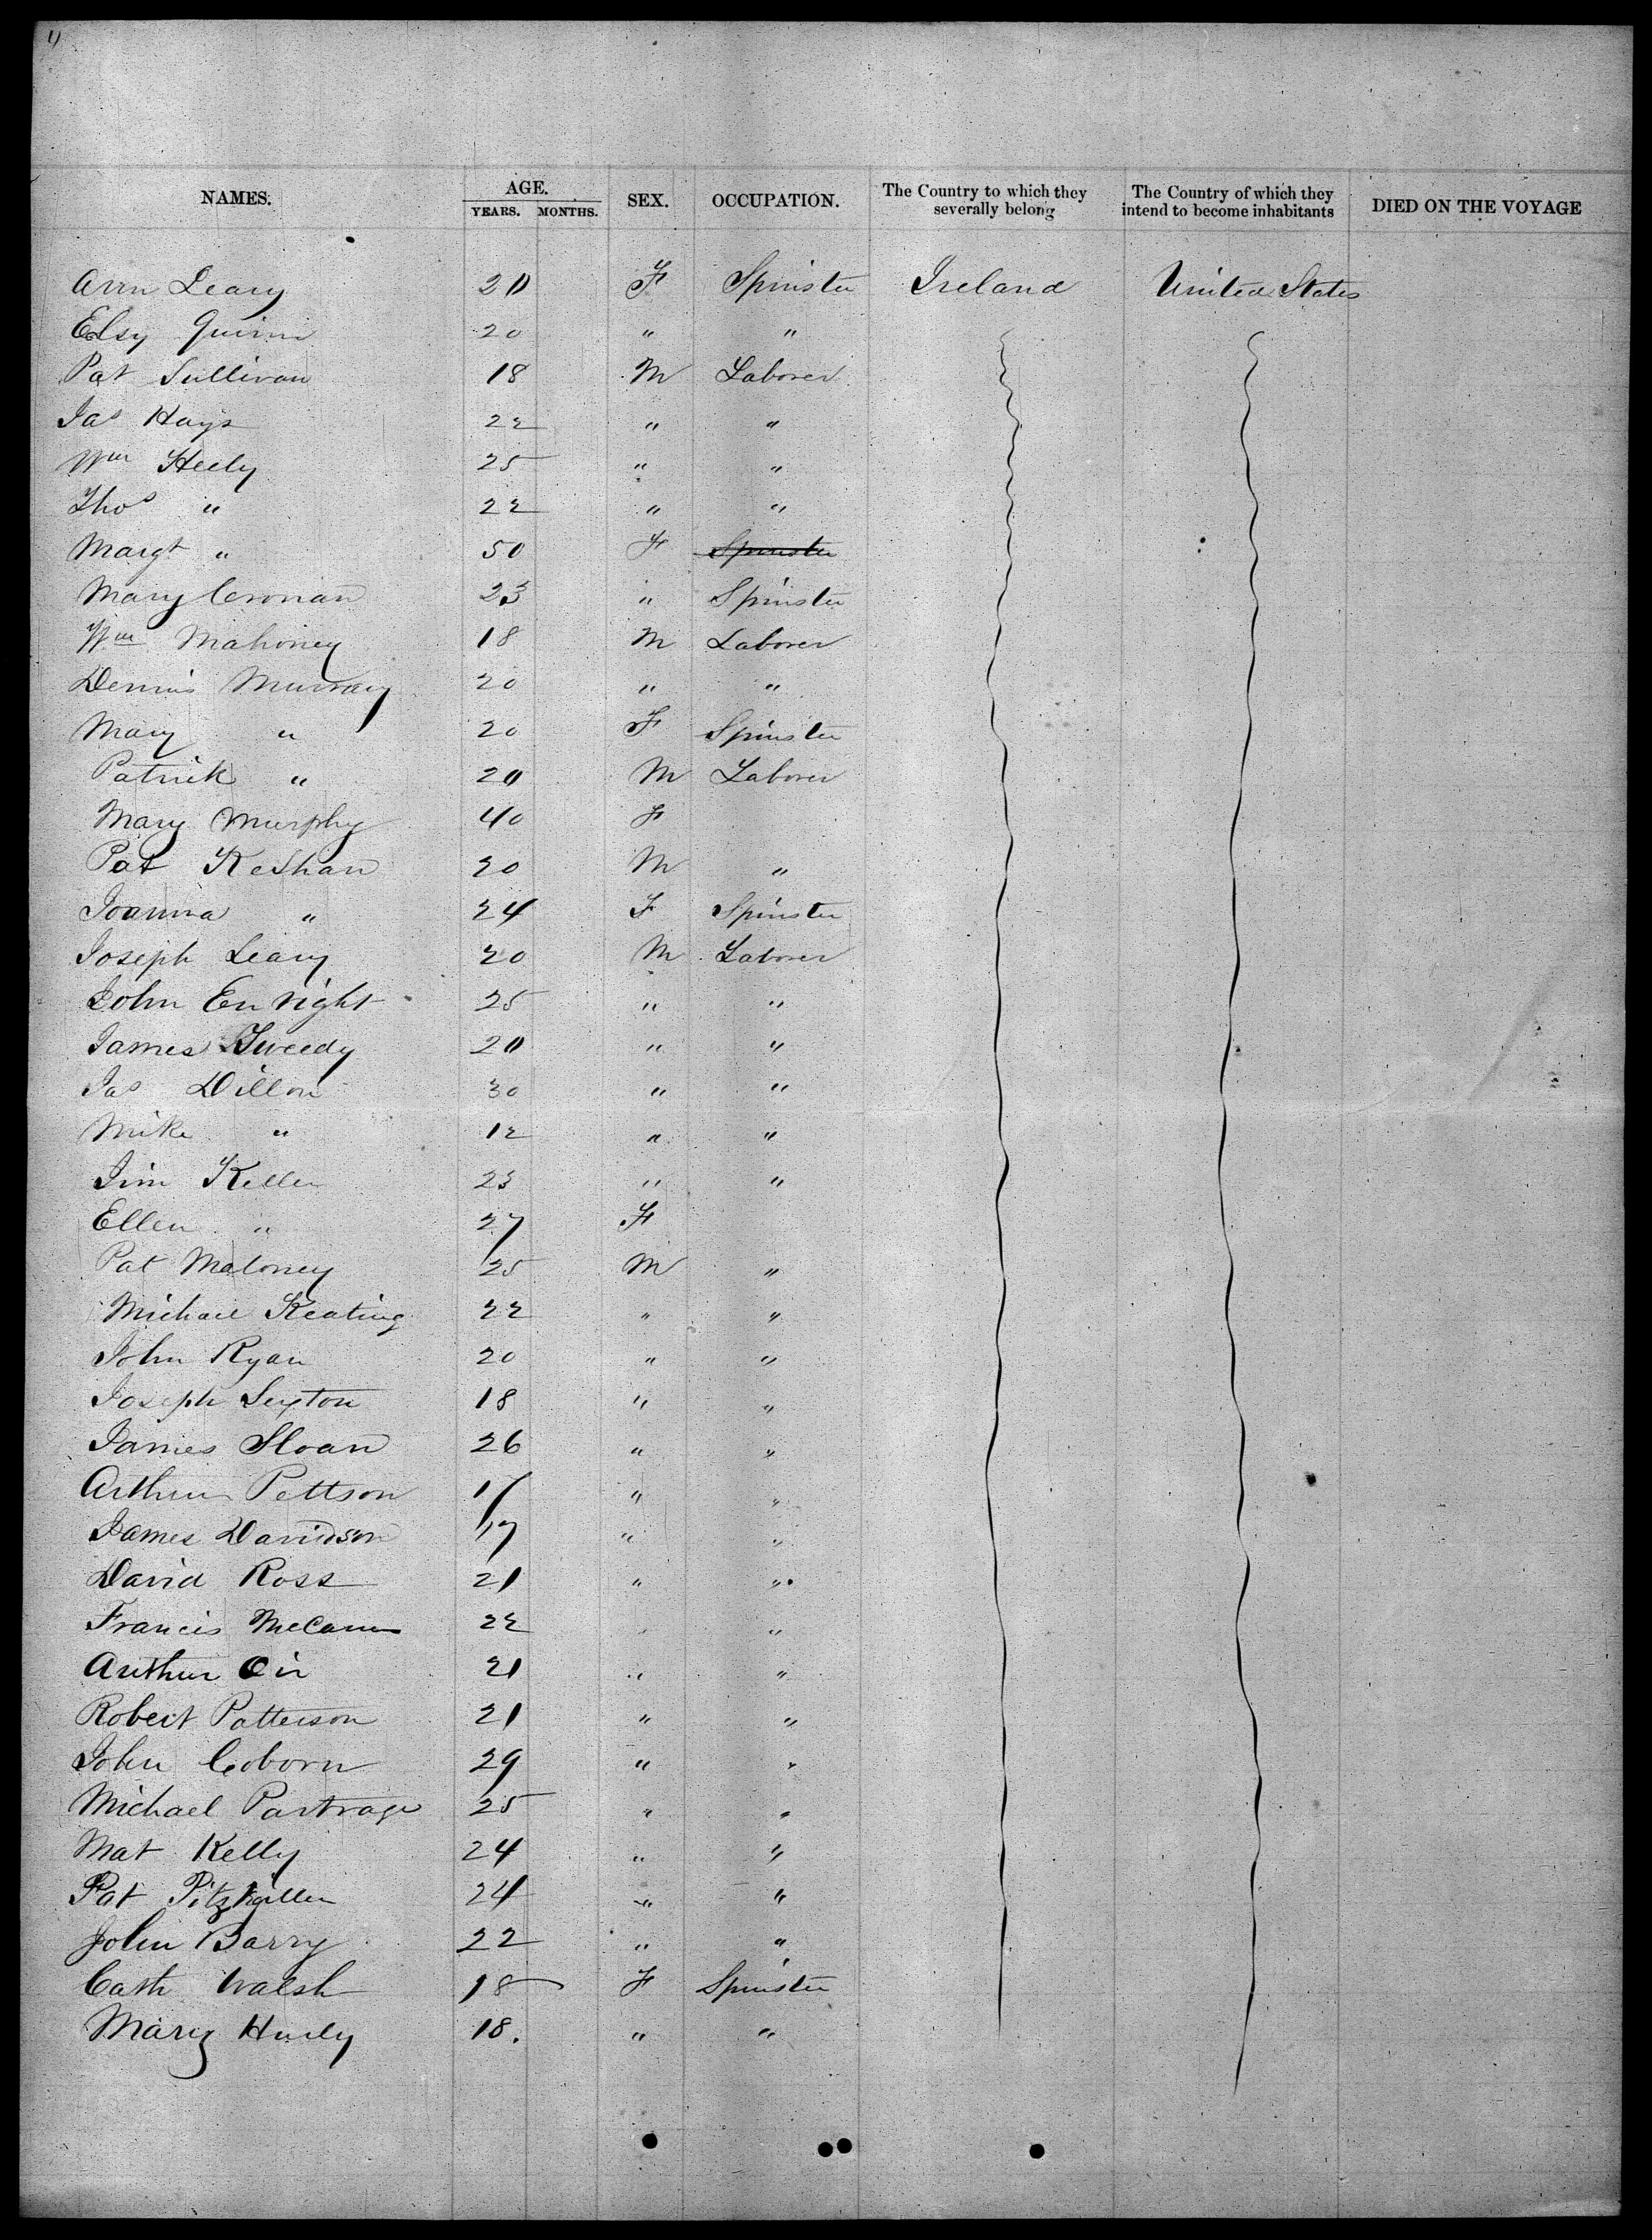 4
NAMES. AGE. YEARS. MONTHS. SEX. OCCUPATION. The Country to which they severally belong The Country of which they intend to become inhabitants DIED ON THE VOYAGE
Ann Leary 20 F Spinster Ireland United States
Elsy Quinn 20 " "
Pat Sullivan 18 M Laborer
Jas Hays 22 " "
Wm Heely 25 " "
Thos " 22 " "
Margt " 50 F Spinster
Mary Cronan 23 " Spinster
Wm Mahoney 18 M Laborer
Dennis Murray 20 " "
Mary " 20 F Spinster
Patrick " 20 M Laborer
Mary Murphy 40 F
Pat Keshan 20 M "
Joanna " 24 F Spinster
Joseph Leary 20 M Laborer
John Enright 25 " "
James Tweedy 20 " "
Jas Dillon 30 " "
Mike " 12 " "
Jim Keller 23 " "
Ellen " 27 F
Pat Maloney 25 M "
Michael Keating 22 " "
John Ryan 20 " "
Joseph Sexton 18 " "
James Sloan 26 " "
Arthur Pettson 17 " "
James Davidson 17 " "
David Ross 21 " "
Francis McCann 22 " "
Arthur Oir 21 " "
Robert Patterson 21 " "
John Coborn 29 " "
Michael Partrage 25 " "
Mat Kelly 24 " "
Pat 24 " "
John Barry 22 " "
Cath Walsh 18 F Spinster
Mary Hurly 18. " "